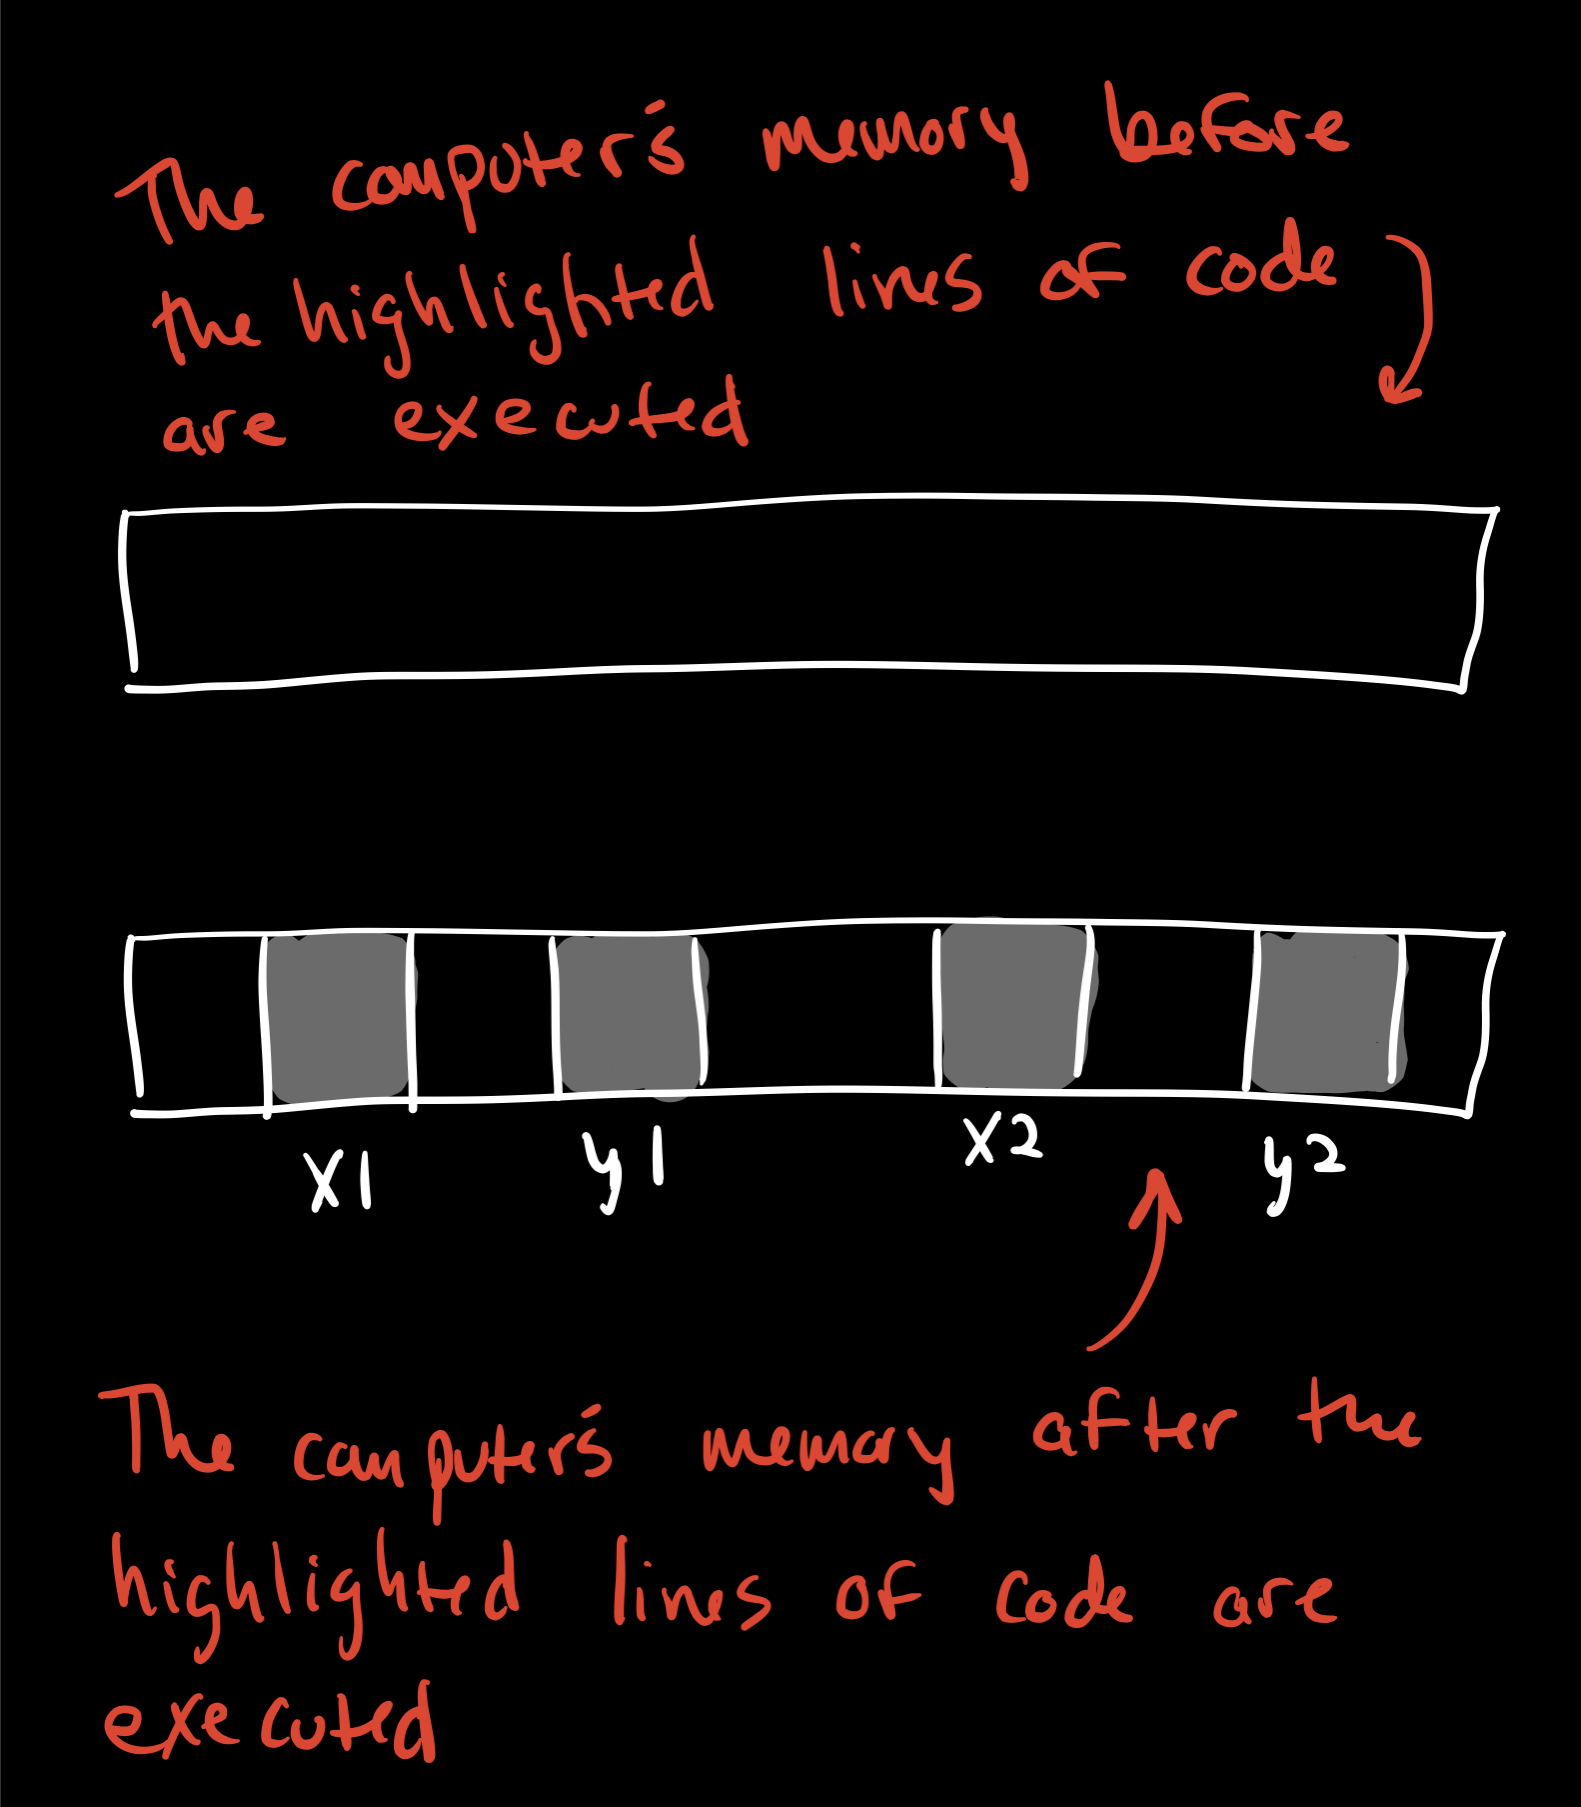 The computer's memory before
the highlighted lines of code
are executed
x1 y1 x2 y2
The computer's memory after the
highlighted lines of code are
executed